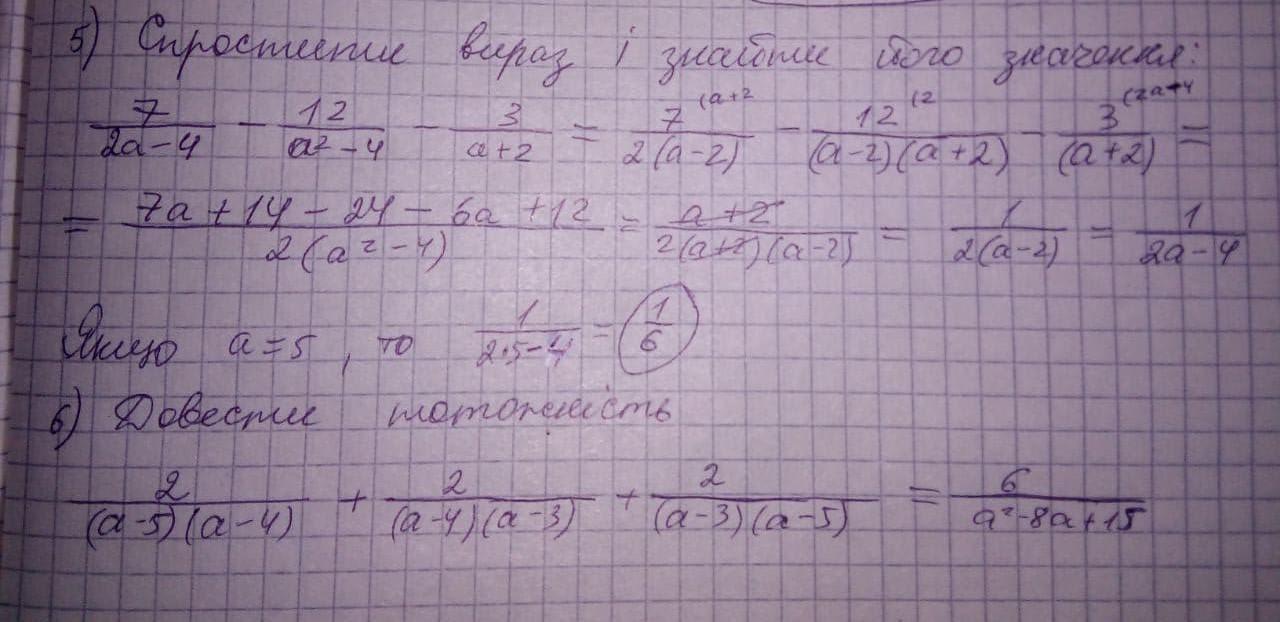 5) Спростити вираз і знайти його значення:
7/(2a-4) - 12/(a²-4) - 3/(a+2) = 7^(a+2/(2(a-2)) - 12^(2/((a-2)(a+2)) - 3^(2a+4/((a+2)) =
= (7a+14-24-6a+12)/(2(a²-4)) = (a+2)/(2(a+2)(a-2)) = 1/(2(a-2)) = 1/(2a-4)
Якщо a=5, то 1/(2·5-4) = 1/6
6) Довести тотожність
2/((a-5)(a-4)) + 2/((a-4)(a-3)) + 2/((a-3)(a-5)) = 6/(a²-8a+15)